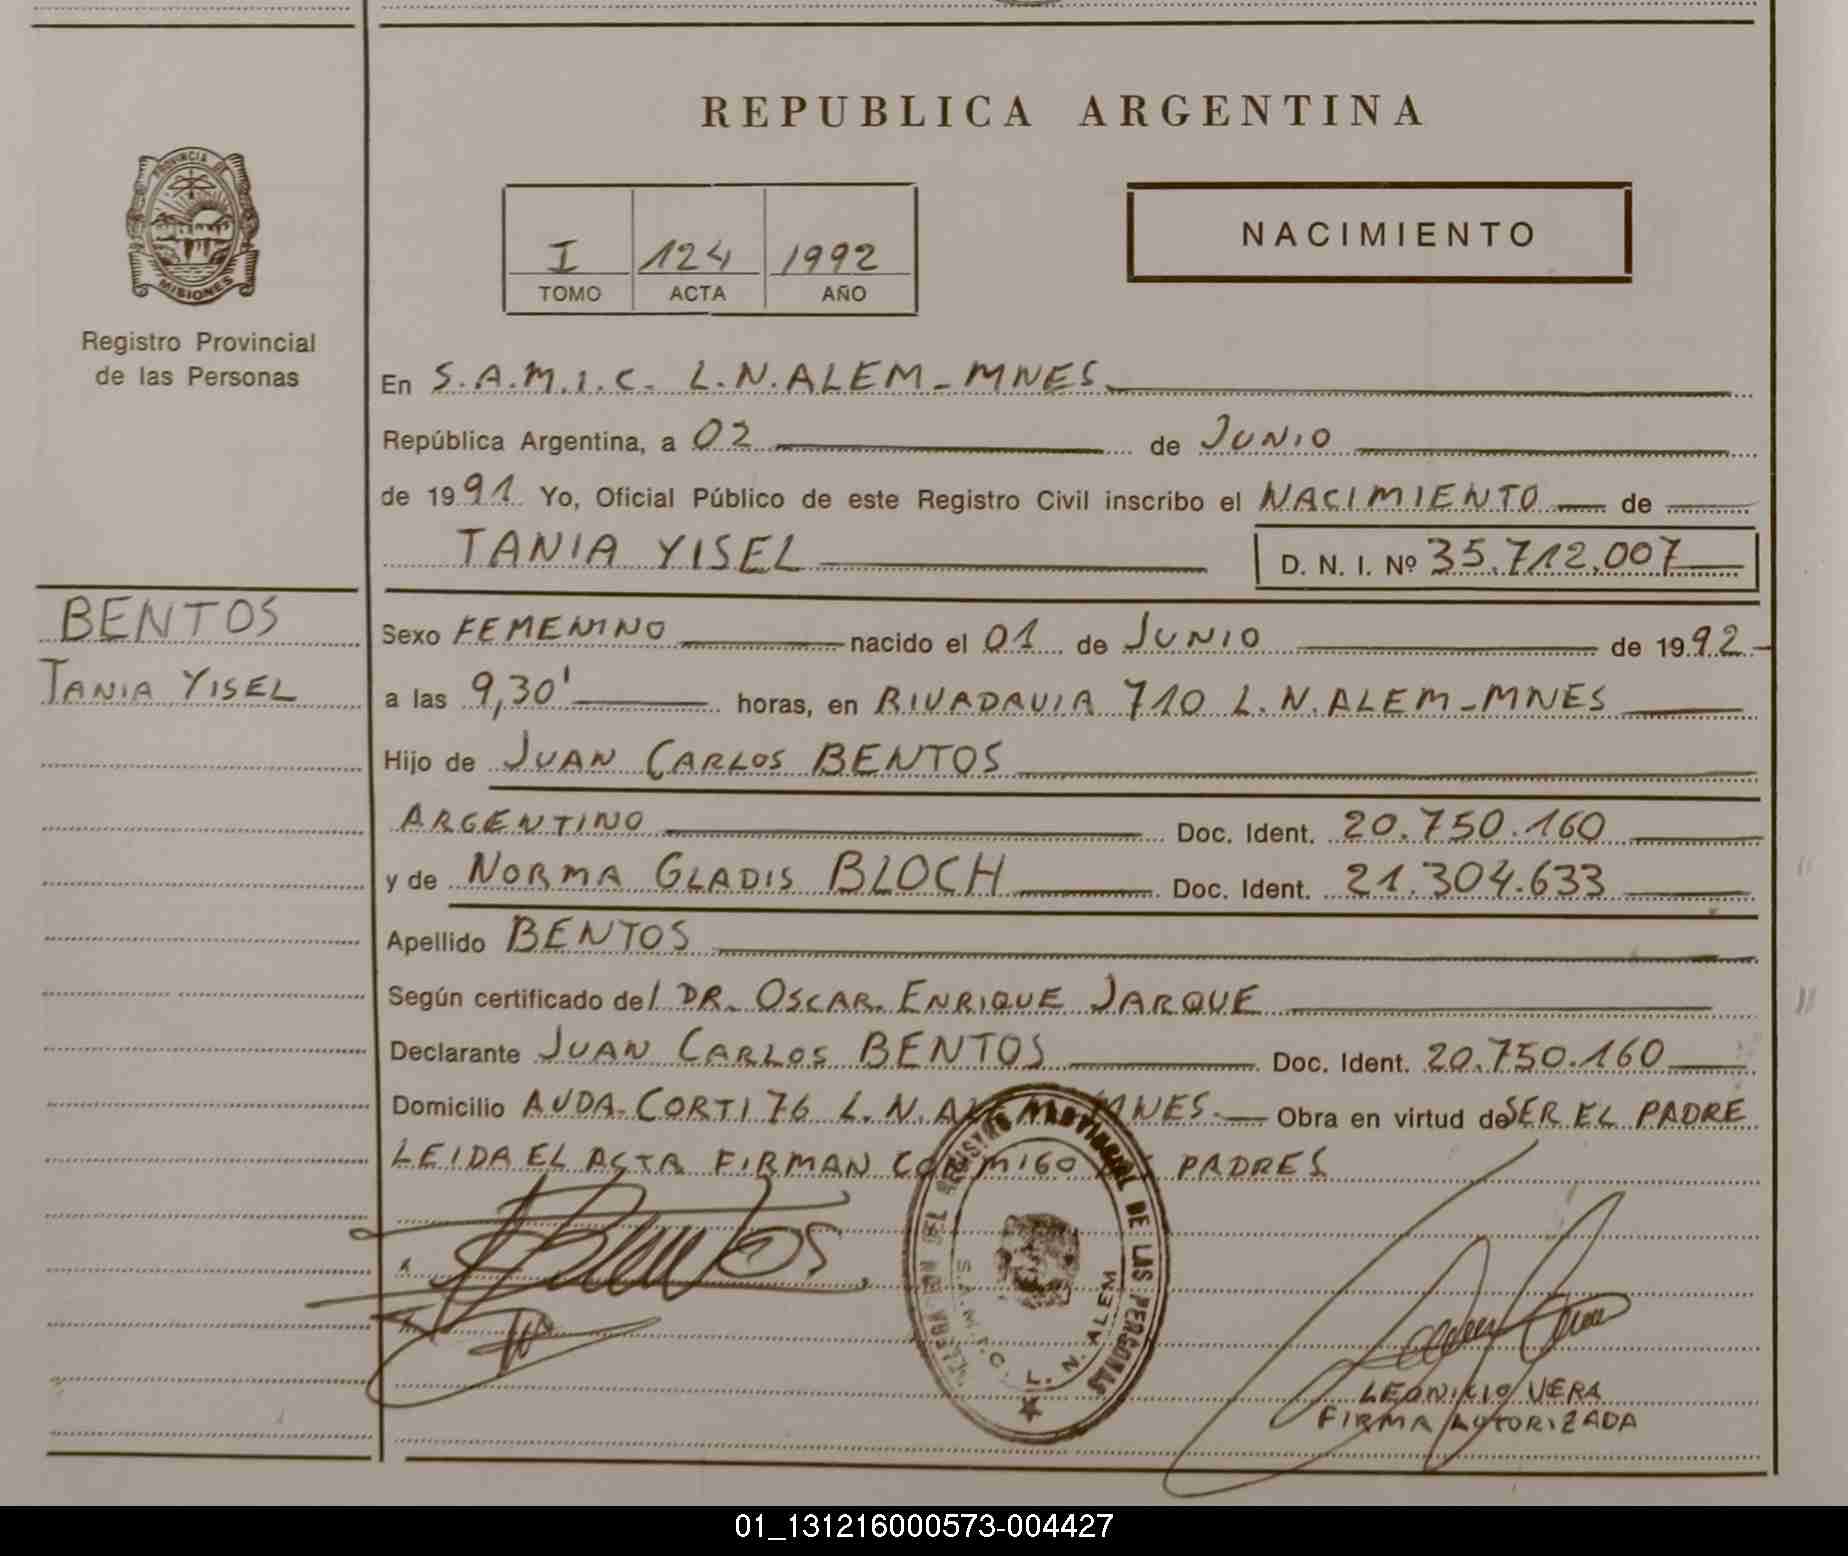 REPUBLICA ARGENTINA
PROVINCIA DE
MISIONES
Registro Provincial
de las Personas
I 124 1992
TOMO ACTA AÑO
NACIMIENTO
En S.A.M.I.C. L.N.ALEM-MNES
República Argentina, a 02 de JUNIO
de 1991 Yo, Oficial Público de este Registro Civil inscribo el NACIMIENTO de
TANIA YISEL
D. N. I. Nº 35.712.007
BENTOS
TANIA YISEL
Sexo FEMENINO nacido el 01 de JUNIO de 1992
a las 9,30' horas, en RIVADAVIA 710 L.N.ALEM-MNES
Hijo de JUAN CARLOS BENTOS
ARGENTINO Doc. Ident. 20.750.160
y de NORMA GLADIS BLOCH Doc. Ident. 21.304.633
Apellido BENTOS
Según certificado del DR. OSCAR ENRIQUE JARQUE
Declarante JUAN CARLOS BENTOS Doc. Ident. 20.750.160
Domicilio AVDA. CORTI 76 L.N.ALEM MNES Obra en virtud de SER EL PADRE
LEIDA EL ACTA FIRMAN CONMIGO PADRES
Bentos
DEL REGISTRO PROVINCIAL DE LAS PERSONAS
S.A.M.I.C. L. N. ALEM
LEONICIO VERA
FIRMA AUTORIZADA
01_131216000573-004427